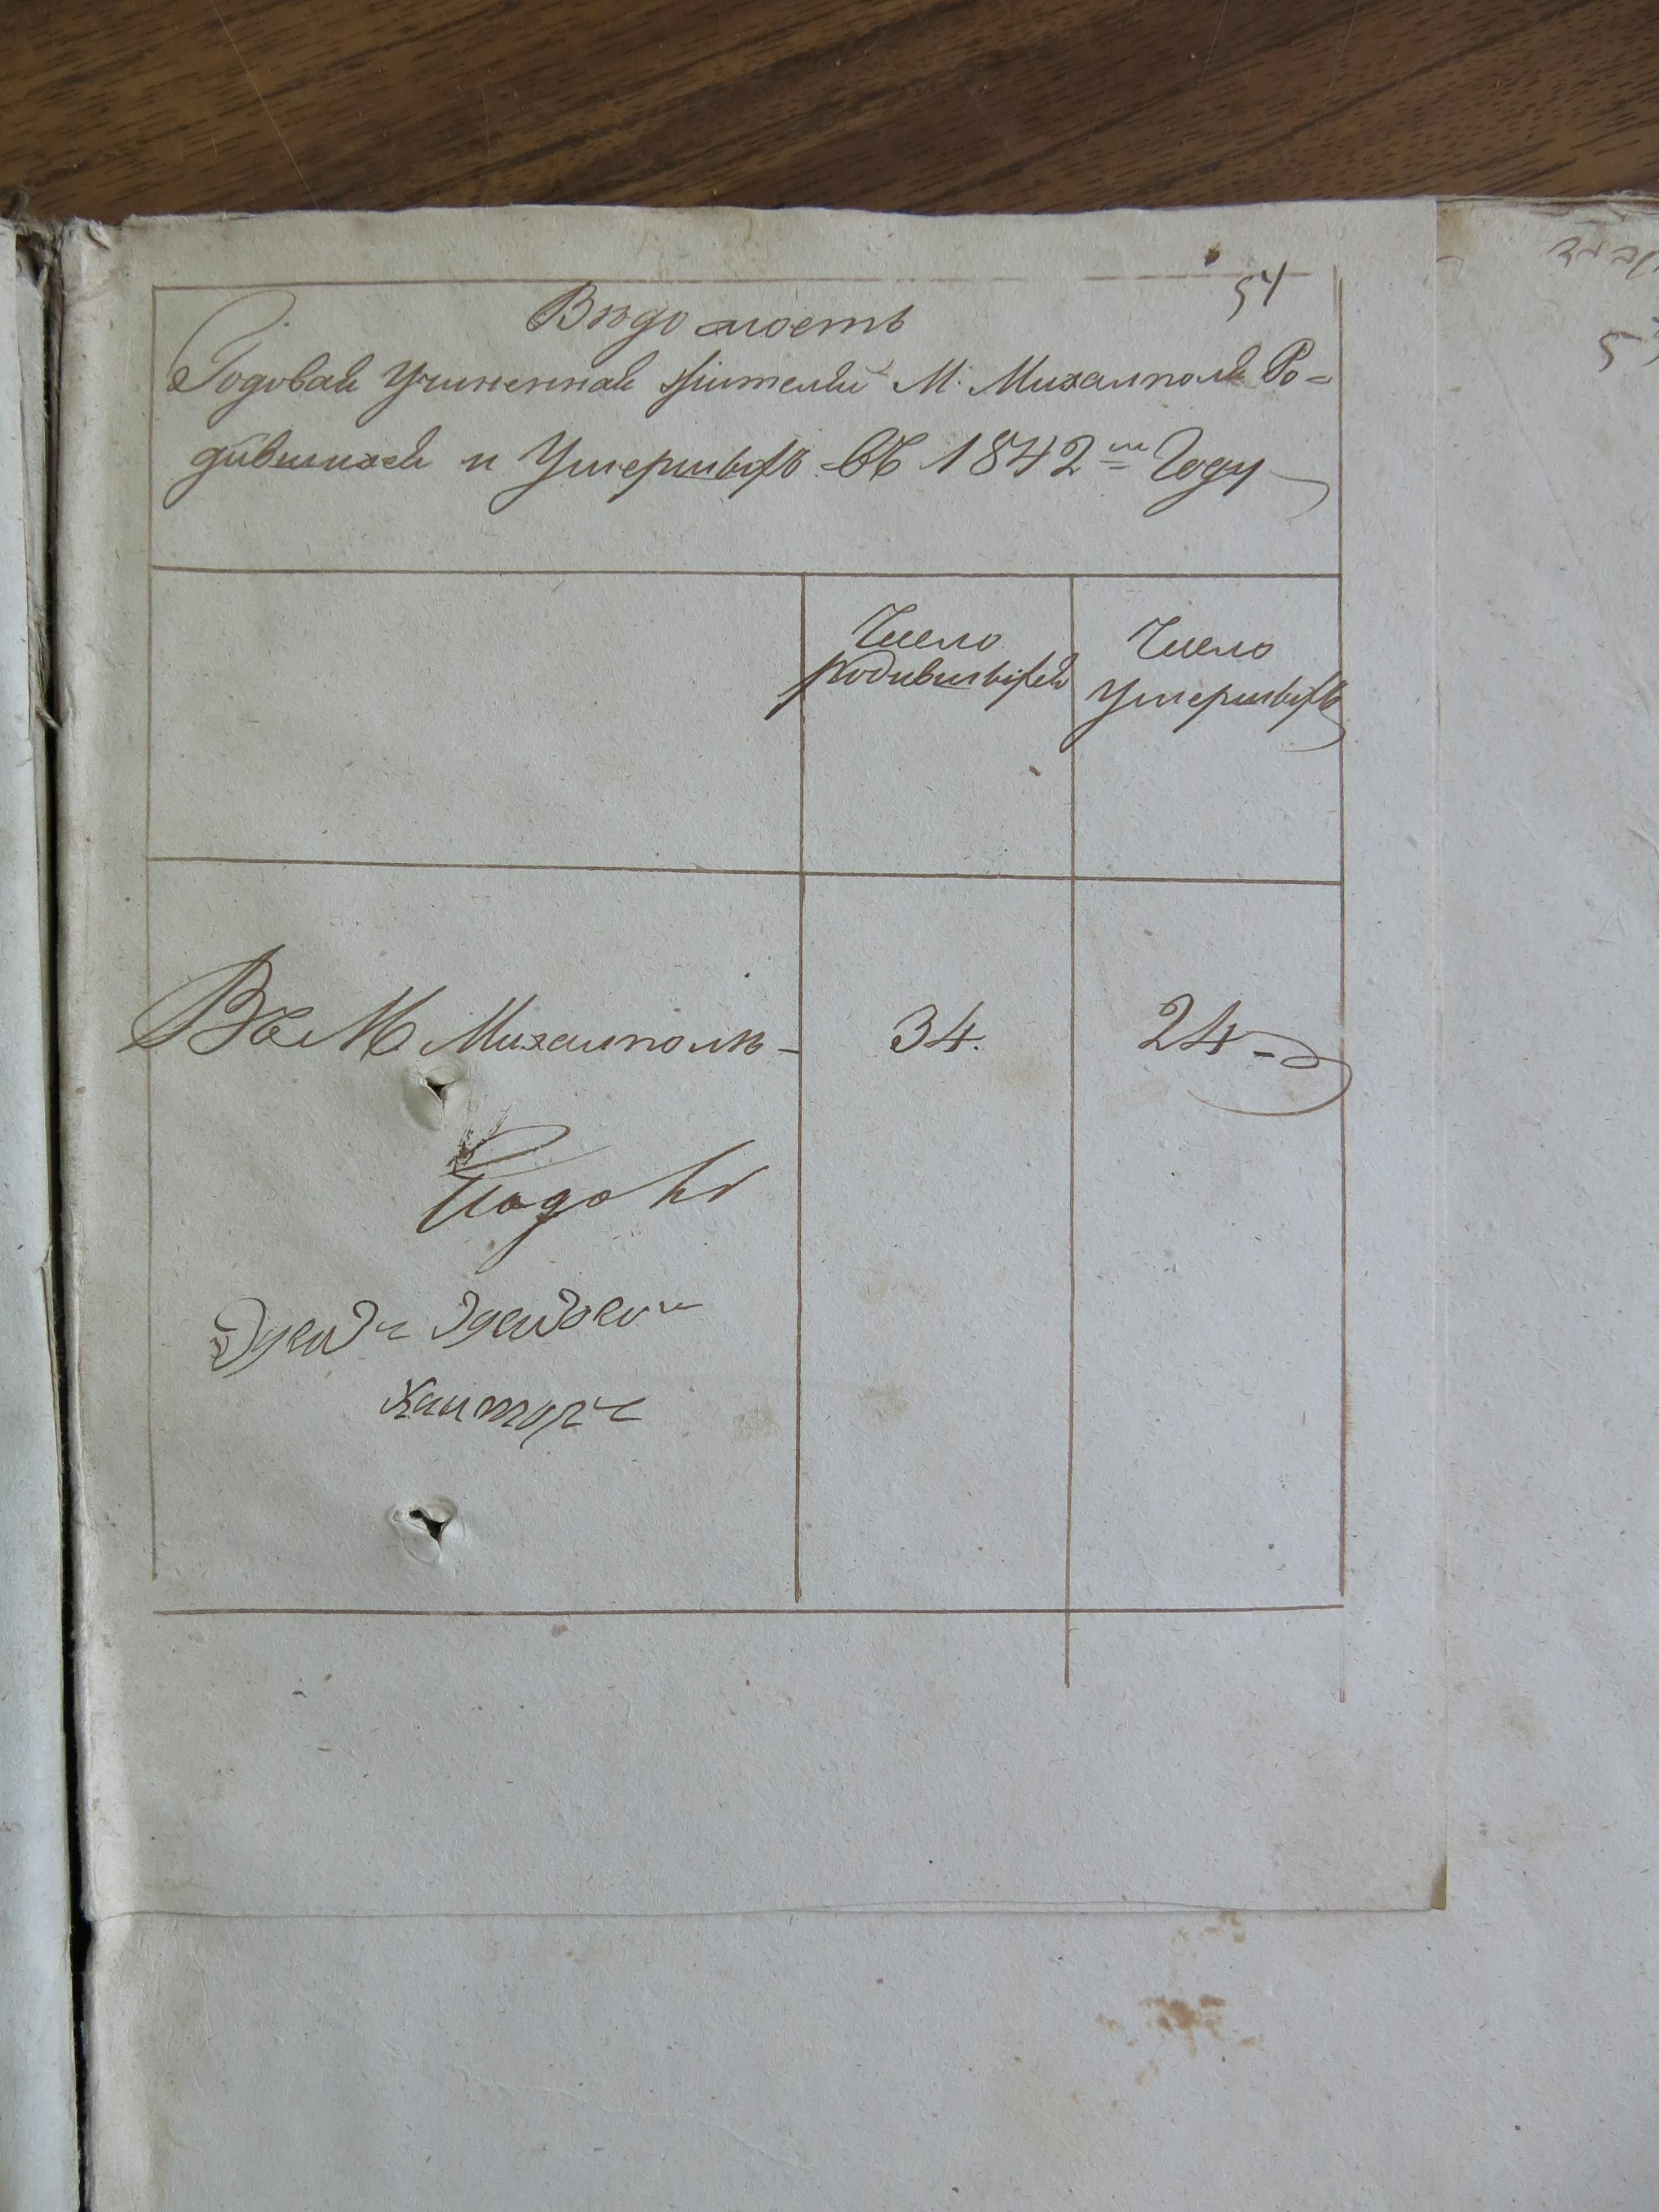 54
Вѣдомость
Годовая Учиненная жителей М. Михалполя Ро=
дившихся и Умершыхъ въ 1842 м Году
Число
родившыхся
Число
Умершыхъ
Въ М Михалполѣ -
34.
24 -